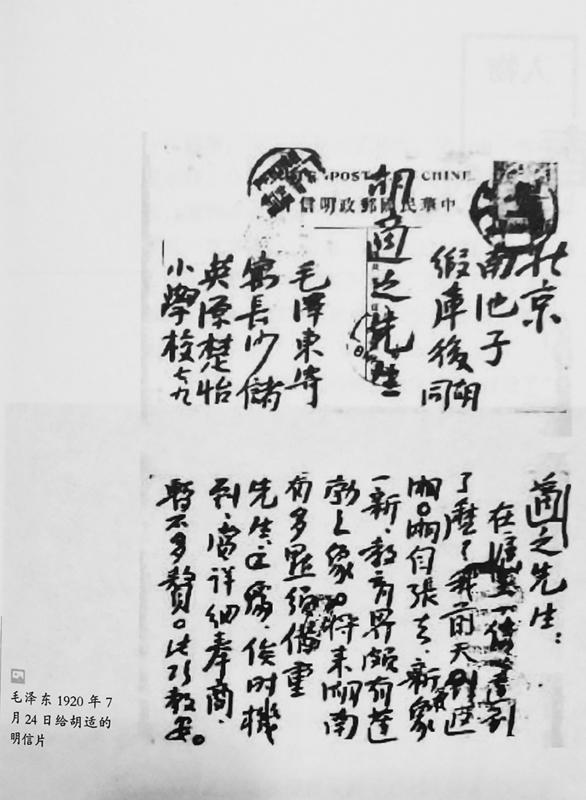 POST CHINE
中華民國郵政明信片
北京
南池子
緞庫後胡同
胡適之先生
毛澤東寄
寓長沙儲
英源楚怡
小學校 七、九
適之先生：
在滬上一信達到
了麽？我前天返
湘。湘自張去，氣象
一新，教育界頗有蓬
勃之象。將來湖南
有多點須借重
先生之處，俟時機
到，當詳細奉商，
暫不多贅。此頌教安。
毛泽东 1920 年 7
月 24 日给胡适的
明信片